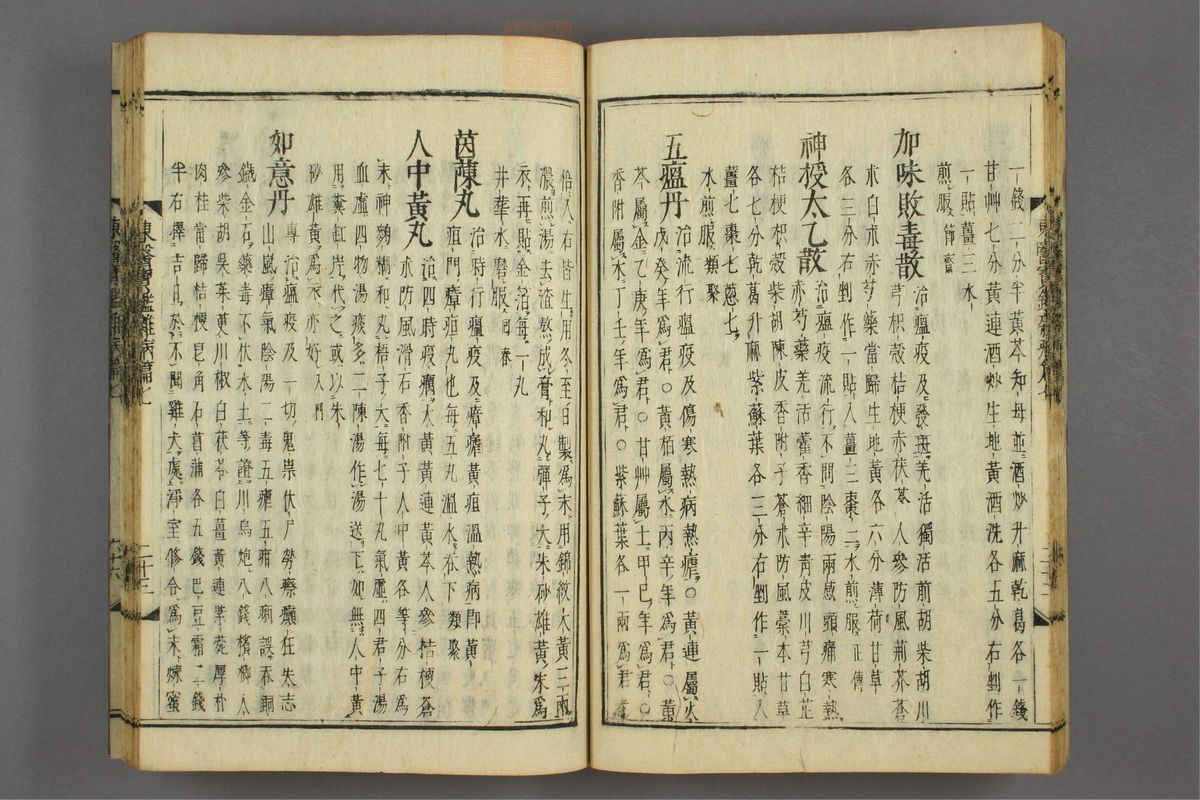 一錢二分半黃芩知母並酒炒升麻乾葛各一錢
甘艸七分黃連酒炒生地黃酒洗各五分右剉作
一貼薑三水
煎服節齋
加味敗毒散 治瘟疫及發斑羌活獨活前胡柴胡川
芎枳殼桔梗赤茯苓人參防風荊芥蒼
朮白朮赤芍藥當歸生地黃各六分薄荷甘草
各三分右剉作一貼入薑三棗二水煎服正傳
神授太乙散 治瘟疫流行不問陰陽兩感頭痛寒熱
赤芍藥羌活藿香細辛靑皮川芎白芷
桔梗枳殼柴胡陳皮香附子蒼朮防風藁本甘草
各七分乾葛升麻紫蘇葉各三分右剉作一貼入
薑七棗七蔥七
水煎服類聚
五瘟丹 治流行瘟疫及傷寒熱病熱瘧○黃連屬火
戊癸年爲君○黃栢屬水丙辛年爲君○黃
芩屬金乙庚年爲君○甘艸屬土甲己年爲君○
香附屬木丁壬年爲君○紫蘇葉各一兩爲君者
倍入右皆生用冬至日製爲末用錦紋大黃三兩
濃煎湯去渣熬成膏和丸彈子大朱砂雄黃末爲
衣再貼金箔每一丸
井華水磨服回春
茵蔯丸 治時行瘟疫及瘴瘧黃疸溫熱病卽黃
疸門瘴疸丸也每五丸溫水呑下類聚
人中黃丸 治四時疫癘大黃黃連黃芩人參桔梗蒼
朮防風滑石香附子人中黃各等分右爲
末神麴糊和丸梧子大每七十丸氣虛四君子湯
血虛四物湯痰多二陳湯作湯送下如無人中黃
用糞缸岸代之或以朱
砂雄黃爲衣亦好入門
如意丹 專治瘟疫及一切鬼祟伏尸勞瘵癲狂失志
山嵐瘴氣陰陽二毒五瘧五疳八痢誤呑銅
鐵金石藥毒不伏水土等證川烏炮八錢檳榔人
參柴胡吳茱萸川椒白茯苓白薑黃連紫菀厚朴
肉桂當歸桔梗皂角石菖蒲各五錢巴豆霜二錢
半右擇吉日於不聞雞犬處淨室修合爲末煉蜜
東醫寶鑑雜病篇七
二十三